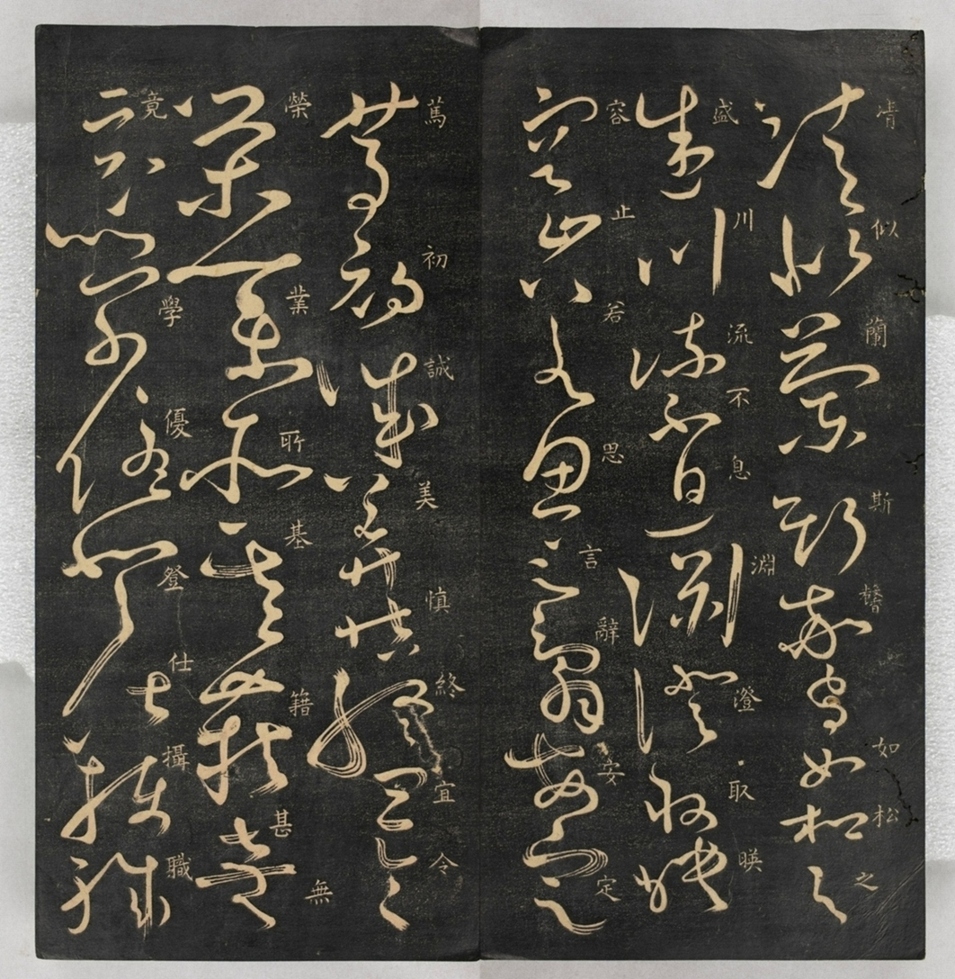 清似蘭斯馨如松之
盛川流不息淵澄取暎
容止若思言辭安定
篤初誠美慎終宜令
榮業所基籍甚無
竟學優登仕攝職